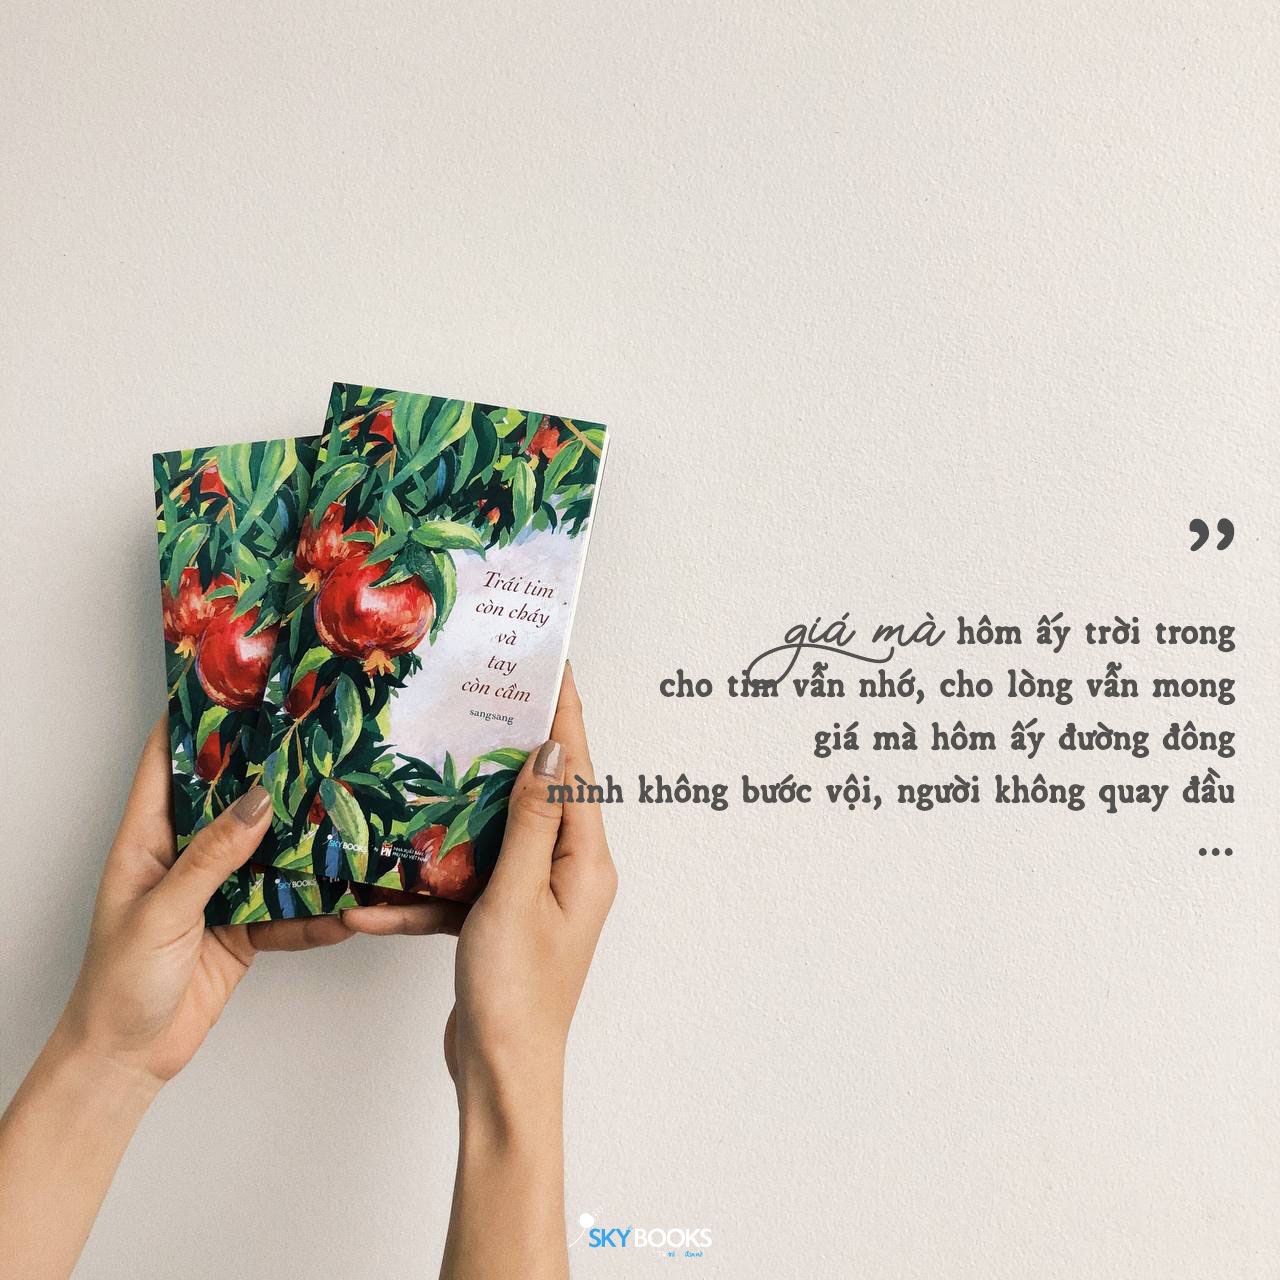 Trái tim
còn cháy
và
tay
còn cầm
sangsang
SKYBOOKS
NHÀ XUẤT BẢN
PHỤ NỮ VIỆT NAM
SKYBOOKS
”
giá mà hôm ấy trời trong
cho tim vẫn nhớ, cho lòng vẫn mong
giá mà hôm ấy đường đông
mình không bước vội, người không quay đầu
...
SKYBOOKS